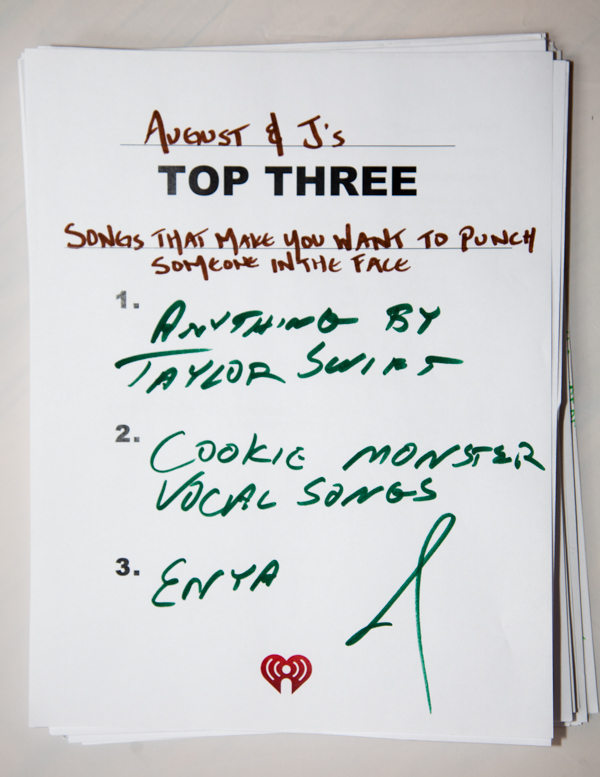 AUGUST & J's
TOP THREE
SONGS THAT MAKE YOU WANT TO PUNCH
SOMEONE IN THE FACE
1. ANYTHING BY
TAYLOR SWIFT
2. COOKIE MONSTER
VOCAL SONGS
3. ENYA